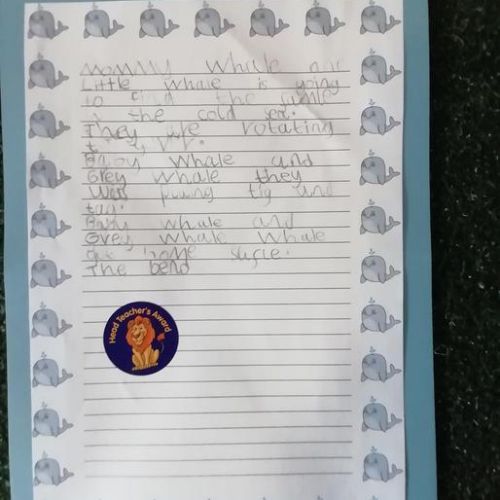 Mommy whale and
Little whale is going
to find the
in the cold sea.
They are rotating
Baby whale and
Grey whale they
Wer tig and
tag.
Baby whale and
Grey whale whale
home
The bend
Head Teacher's Award